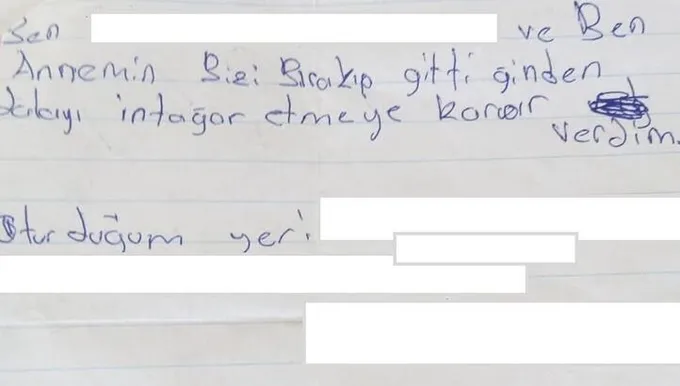 Ben ve Ben
Annemin Bizi Bırakıp gitti ğinden
intağar etmeye karar
verdim.
Oturduğum yer: